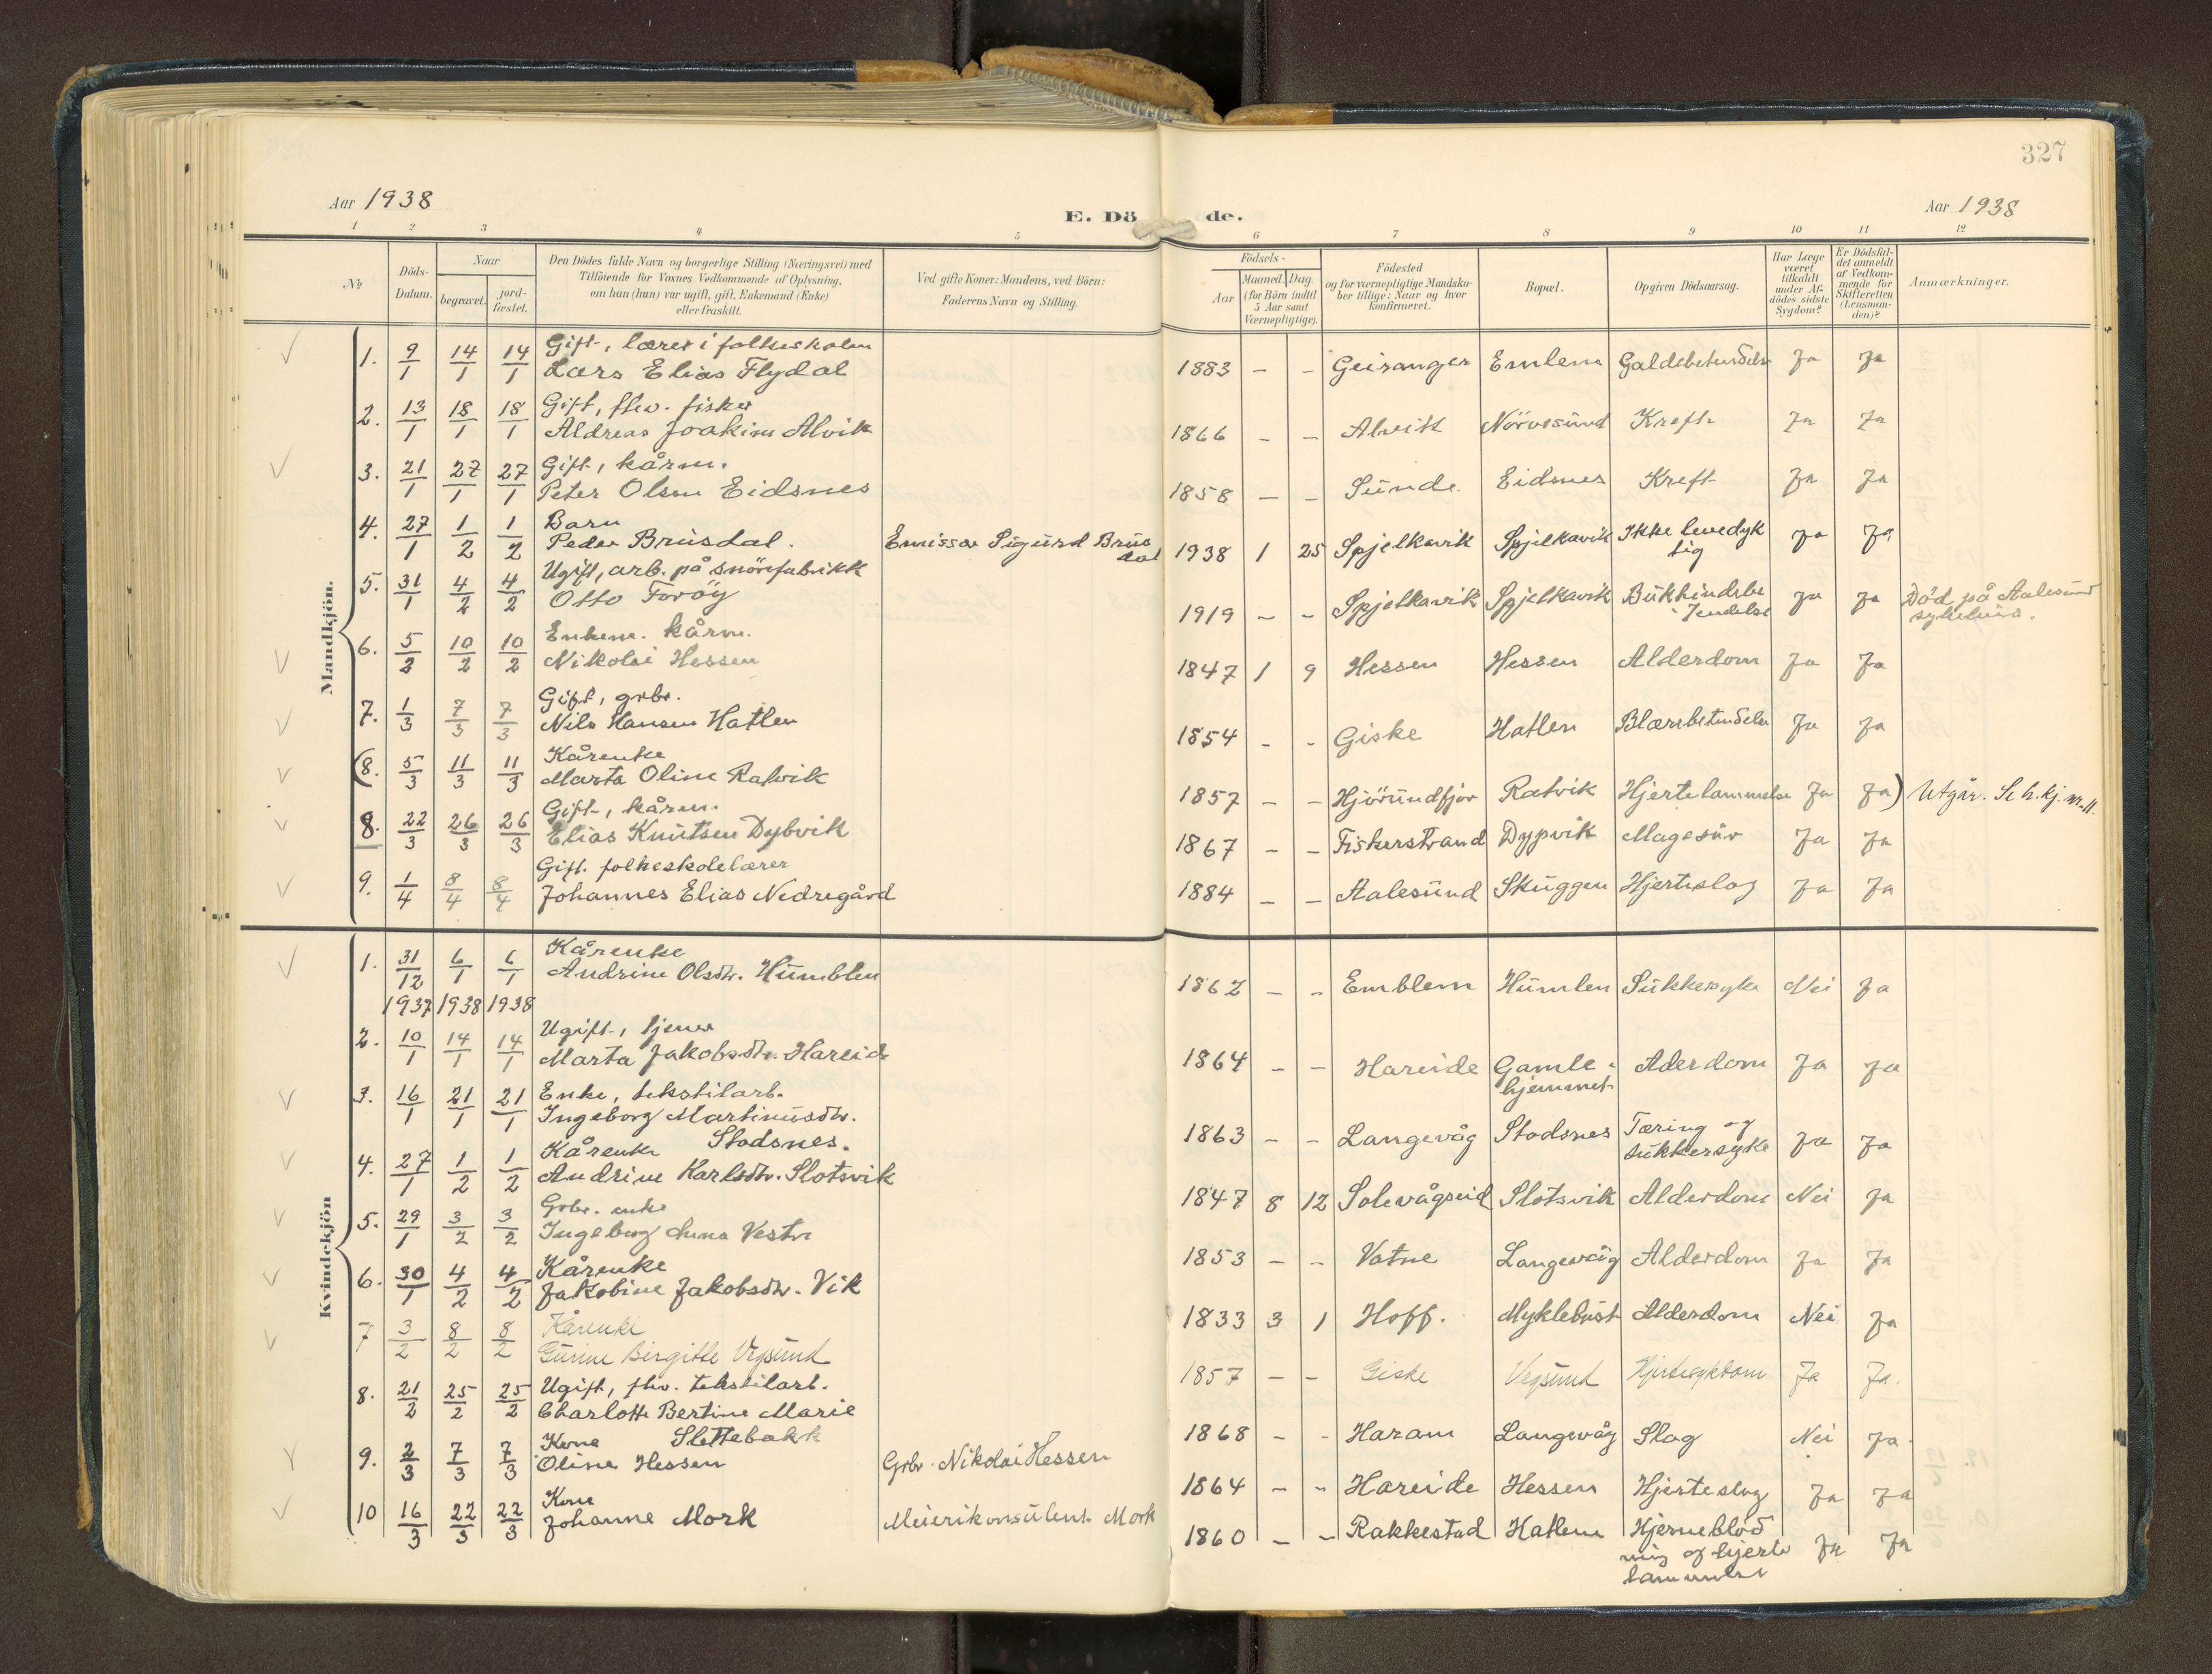 327
Aar 1938
E. Dö de.
Aar 1938
1 2 3 4 5 6 7 8 9 10 11 12
No
Döds-Datum.
Naar
begravet.
jord-fæstet.
Den Dödes fulde Navn og borgerlige Stilling (Næringsvei) med
Tilföiende for Voxnes Vedkommende af Oplysning,
om han (hun) var ugift, gift, Enkemand (Enke)
eller fraskilt.
Ved gifte Koner: Mandens, ved Börn:
Faderens Navn og Stilling.
Födsels-
Aar
Maaned. Dag.
(for Börn indtil
5 Aar samt
Værnepligtige).
Födested
og for værnepligtige Mandska-
ber tillige: Naar og hvor
konfirmeret.
Bopæl.
Opgiven Dödsaarsag.
Har Læge
været
tilkaldt
under Af-
dödes sidste
Sygdom?
Er Dödsfal-
det anmeldt
af Vedkom-
mende for
Skifteretten
(Lensman-
den)?
Anmærkninger.
Mandkjön.
Gift, lærer i folkeskolen
1. 9/1 14/1 14/1 Lars Elias Flydal 1883 - - Geiranger Emlem Galdebetendelse Ja Ja
Gift, fhv. fisker
2. 13/1 18/1 18/1 Aldreas Joakim Alvik 1866 - - Alvik Nörvesund Kreft Ja Ja
Gift, kårm.
3. 21/1 27/1 27/1 Peter Olsen Eidsnes 1858 - - Sunde Eidsnes Kreft Ja Ja
Barn
4. 27/1 1/2 1/2 Peder Brusdal. Emissær Sigurd Brus 1938 1 25 Spjelkavik Spjelkavik Ikke levedyk Ja Ja
dal
tig
Ugift, arb. på snörefabrikk
5. 31/1 4/2 4/2 Otto Foröy 1919 - - Spjelkavik Spjelkavik Bukhindebe Ja Ja Död på Aalesund
tendelse
sykehus.
Enkem. kårm.
6. 5/2 10/2 10/2 Nikolai Hessen 1847 1 9 Hessen Hessen Alderdom Ja Ja
Gift, grbr.
7. 1/3 7/3 7/3 Nils Hansen Hatlen 1854 - - Giske Hatlen Blærebetendelse Ja Ja
Kårenke
(8. 5/3 11/3 11/3 Marta Oline Ratvik 1857 - - Hjörundfjor Ratvik Hjertelammelse Ja Ja) Utgår. Se k.kj. nr. 11.
Gift, kårm.
8. 22/3 26/3 26/3 Elias Knutsen Dybvik 1867 - - Fiskerstrand Dypvik Magesår Ja Ja
Gift. folkeskolelærer
9. 1/4 8/4 8/4 Johannes Elias Nedregård 1884 - - Aalesund Skuggen Hjerteslag Ja Ja
Kvindekjön
Kårenke
1. 31/12 6/1 6/1 Andrine Olsdtr. Humblen 1862 - - Emblem Humlen Sukkersyke Nei Ja
1937 1938 1938
Ugift, tjener
2. 10/1 14/1 14/1 Marta Jakobsdtr. Hareid 1864 - - Hareide Gamle- Aderdom Ja Ja
hjemmet
Enke, tekstilarb.
3. 16/1 21/1 21/1 Ingeborg Martinusdtr. 1863 - - Langevåg Stadsnes Tæring og Ja Ja
Stadsnes.
sukkersyke
Kårenke
4. 27/1 1/2 1/2 Andrine Karlsdtr. Slotsvik 1847 8 12 Solevågseid Slotsvik Alderdom Nei Ja
Grbr. enke
5. 29/1 3/2 3/2 Ingeborg Anna Vestre 1853 - - Vatne Langevåg Alderdom Ja Ja
Kårenke
6. 30/1 4/2 4/2 Jakobine Jakobsdtr. Vik 1833 3 1 Hoff. Myklebust Alderdom Nei Ja
Kårenke
7 3/2 8/2 8/2 Gurine Birgitte Vegsund 1857 - - Giske Vegsund Hjertesykdom Ja Ja.
Ugift, fhv. tekstilarb.
8. 21/2 25/2 25/2 Charlotte Bertine Marie 1868 - - Haram Langevåg Slag Nei Ja
Slettebakk
Kone
9. 2/3 7/3 7/3 Oline Hessen Grbr. Nikolai Hessen 1864 - - Hareide Hessen Hjerteslag Ja Ja
Kone
10 16/3 22/3 22/3 Johanne Mork Meierikonsulent Mork 1860 - - Rakkestad Hatlen Hjerneblöd Ja Ja
ning og hjerte
lammelse